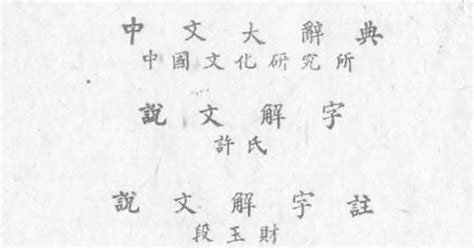 中文大辭典
中國文化研究所
說文解字
許氏
說文解字註
段玉財